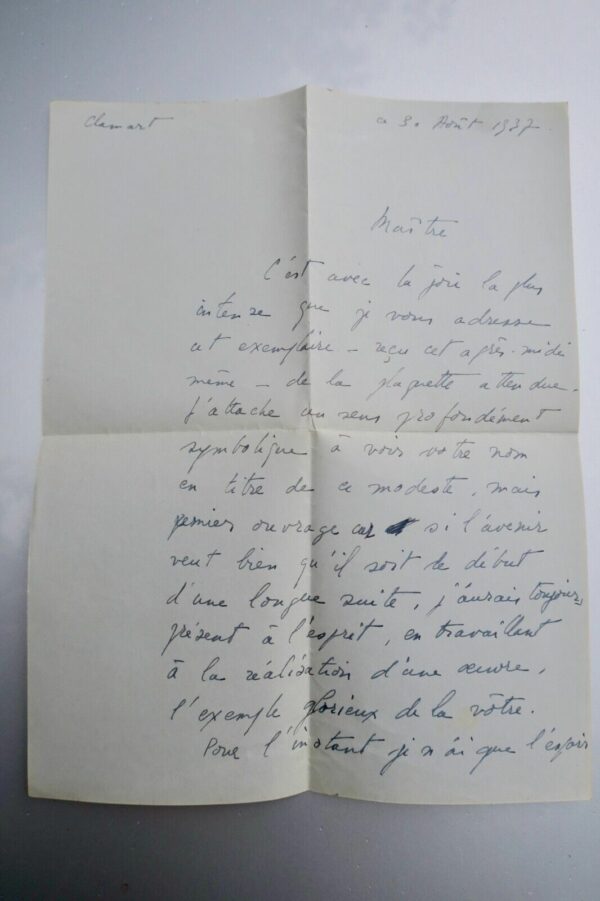 Clamart
ce 30 Août 1937
Maître
C'est avec la joie la plus
intense que je vous adresse
cet exemplaire – reçu cet après-midi
même – de la plaquette attendue.
J'attache un sens profondément
symbolique à voir votre nom
en titre de ce modeste, mais
premier ouvrage car si l'avenir
veut bien qu'il soit le début
d'une longue suite, j'aurais toujours
présent à l'esprit, en travaillant
à la réalisation d'une œuvre,
l'exemple glorieux de la vôtre.
Pour l'instant je n'ai que l'espoir